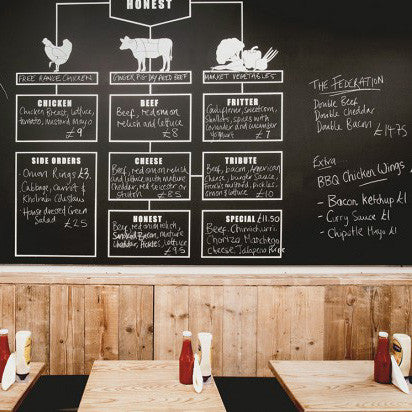 HONEST
FREE RANGE CHICKEN
GINGER PIG DRY AGED BEEF
MARKET VEGETABLES
CHICKEN
Chicken Breast, lettuce,
tomato, mustard Mayo
£9
BEEF
Beef, red onion
relish and lettuce
£8
FRITTER
Cauliflower, sweetcorn,
Shallots, spices with
coriander and cucumber
yoghurt £7
SIDE ORDERS
Onion Rings £3
Cabbage, Carrot &
Kholrabi Coleslaw
House dressed Green
SALAD
£2.5
CHEESE
Beef, red onion relish
and lettuce with mature
Cheddar, red leicester or
stilton £8.5
TRIBUTE
Beef, bacon, American
cheese, burger sauce,
French's mustard, pickles,
onion & lettuce £10
HONEST
Beef, red onion relish,
Smoked Bacon, mature
Cheddar, Pickles, lettuce
£9.5
SPECIAL £11.50
Beef, Chimichurri,
Chorizo, Manchego
cheese, Jalapeno
THE FEDERATION
Double Beef
Double Cheddar
Double Bacon
£14.75
Extra
BBQ Chicken Wings
- Bacon Ketchup £1
- Curry Sauce £1
- Chipotle Mayo £1